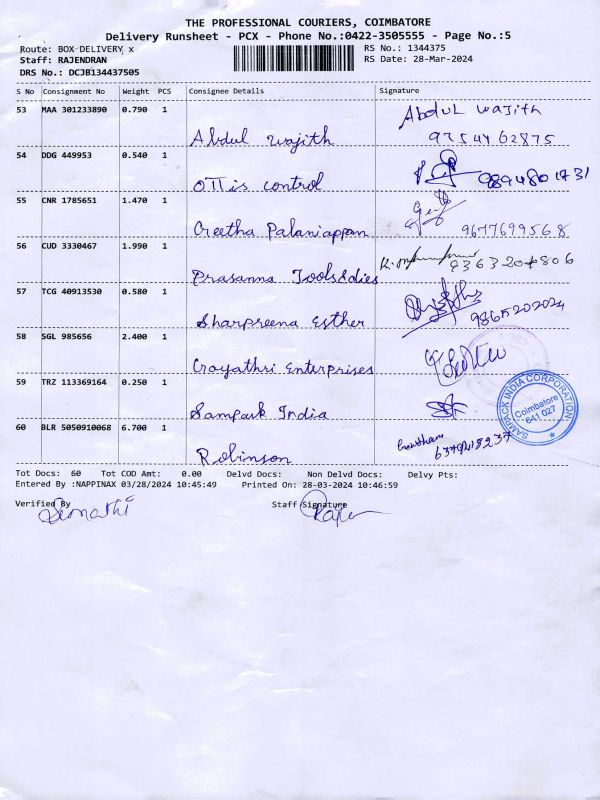 THE PROFESSIONAL COURIERS, COIMBATORE
Delivery Runsheet - PCX - Phone No.:0422-3505555 - Page No.:5
Route: BOX DELIVERY x
RS No.: 1344375
Staff: RAJENDRAN
RS Date: 28-Mar-2024
DRS No.: DCJB134437505
S No Consignment No Weight PCS Consignee Details Signature
53 MAA 301233890 0.790 1 Abdul wajith Abdul wajith
9754462875
54 DDG 449953 0.540 1 OTTis control
55 CNR 1785651 1.470 1 Geetha Palaniappan 9677699568
56 CUD 3330467 1.990 1 Prasanna Tools&dies
57 TCG 40913530 0.580 1 Sharpreena Esther 9865202024
58 SGL 985656 2.400 1 Gayathri Enterprises
59 TRZ 113369164 0.250 1 Sampark India
SAMPACK INDIA CORPORATION
Coimbatore
641 027
60 BLR 5050910068 6.700 1 Robinson Gowtham
Tot Docs: 60 Tot COD Amt: 0.00 Delvd Docs: Non Delvd Docs: Delvy Pts:
Entered By :NAPPINAX 03/28/2024 10:45:49 Printed On: 28-03-2024 10:46:59
Verified By
Staff Signature